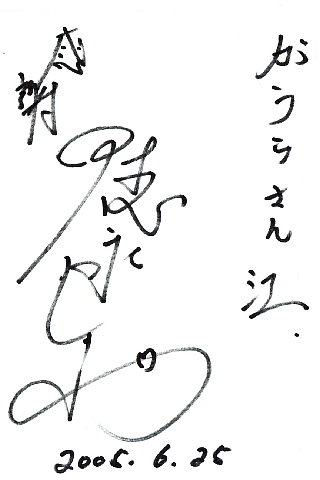 がうらさん江.
感謝
2005. 6. 25